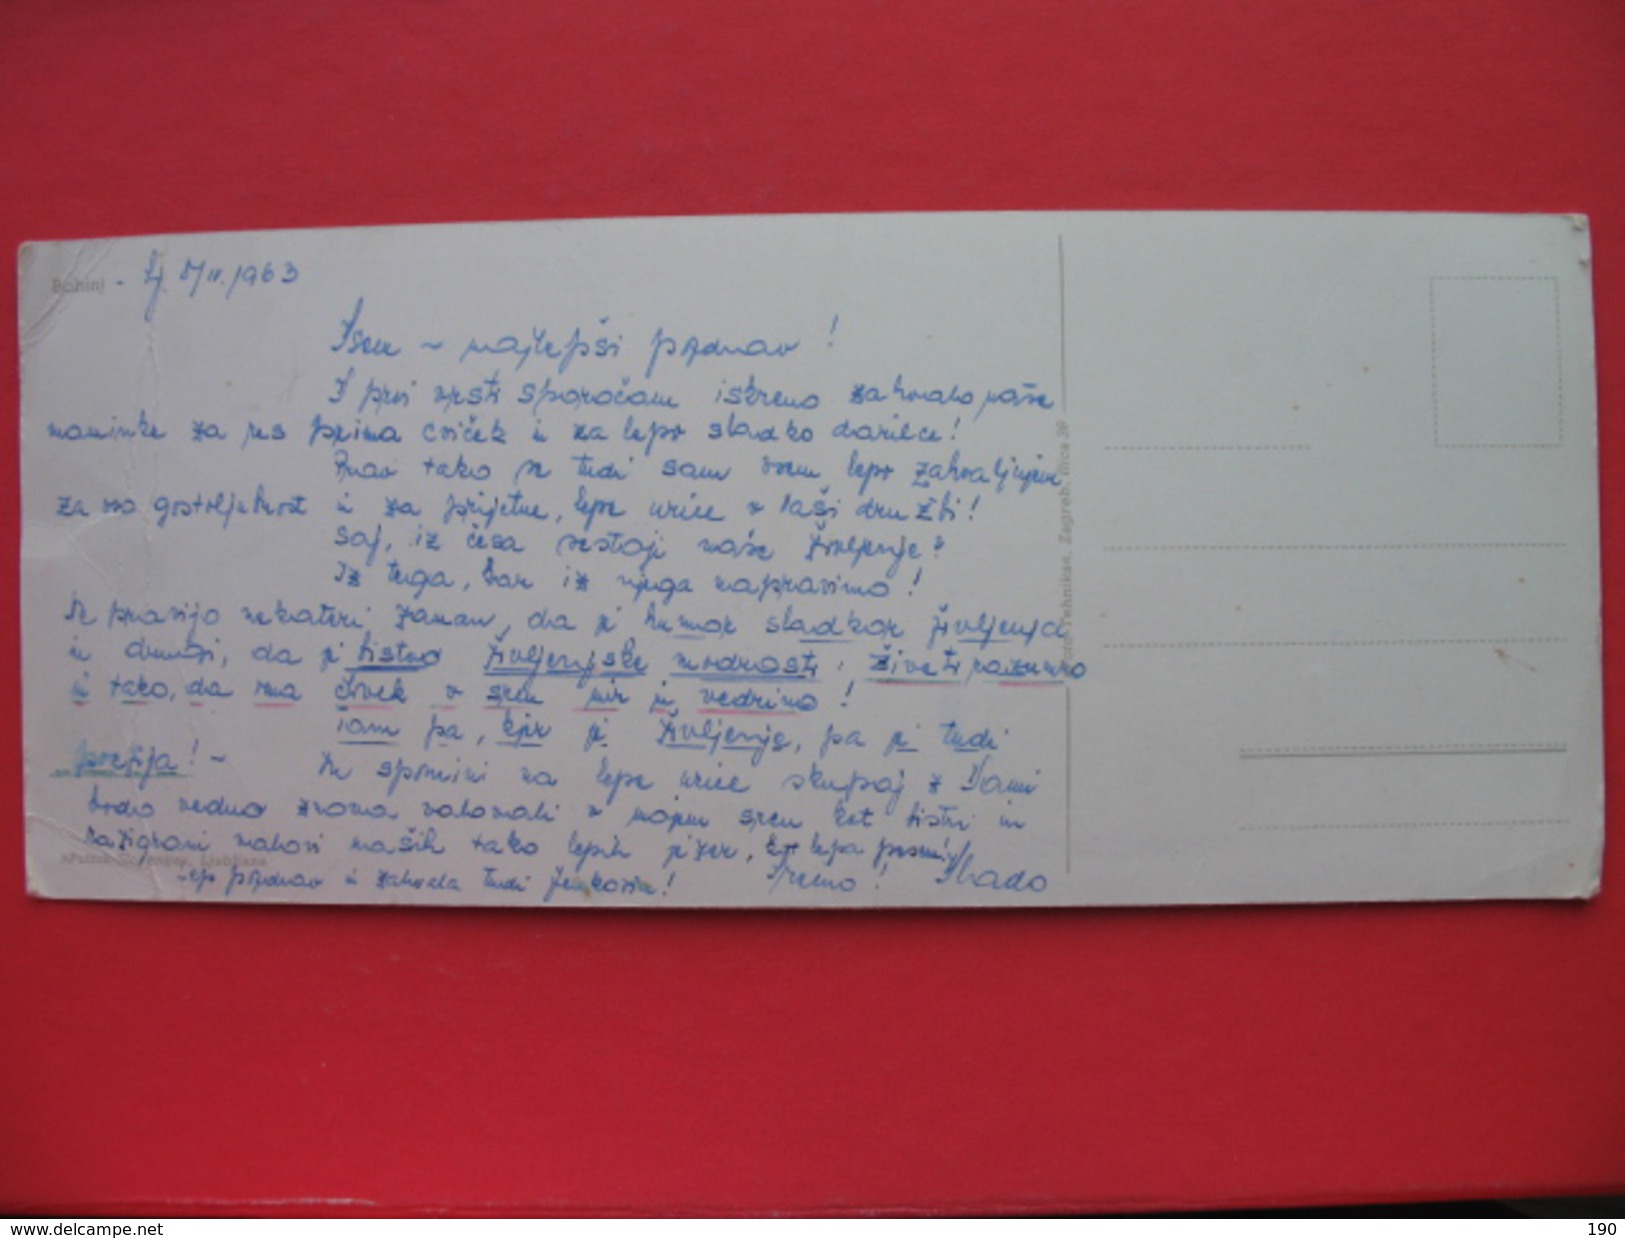 Bohinj - Lj. 1963
Vsem ~ najlepši pozdrav!
V prvi vrsti sporočam iskreno zahvalo naše
maminke za res prima cviček in za lepo sladko darilce!
Prav tako se tudi sam vsem lepo zahvaljujem
za vso gostoljubnost in za prijetne, lepe urice v Vaši družbi!
Saj, iz česa sestoji naše življenje?
Iz tega, kar iz njega napravimo!
Ne pravijo nekateri zaman, da je humor sladkor življenja
in drugi, da je bistvo življenjske modrosti: živeti razumno
in tako, da ima človek v srcu mir in vedrino!
Tam pa, kjer je življenje, pa je tudi
poezija! ~ In spomini na lepe urice skupaj z Vami
bodo vedno znova valovali v mojem srcu kot bistri in
razigrani valovi naših tako lepih jezer, kot lepa pesmica!
Lep pozdrav in zahvala tudi Srečno! Vlado
Putnik Slovenija, Ljubljana
Foto Tehnika, Zagreb, Ilica 36
delcampe.net
190